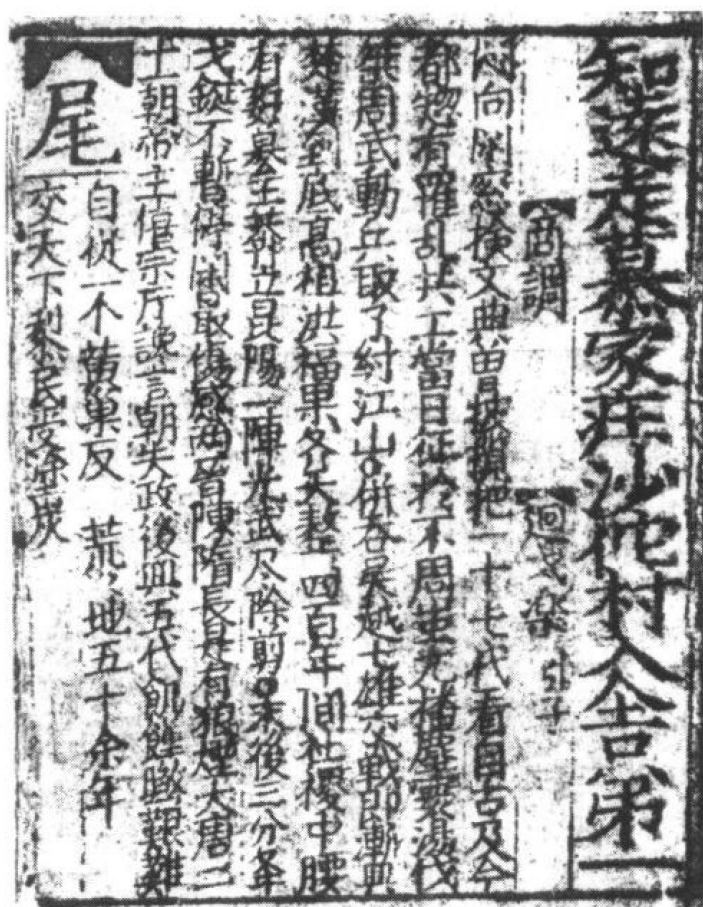 知遠走慕家庄沙佗村入舍第一
商調 迴戈楽 引子
悶向閑窓檢文典曾披攬把一十七代看自古及今
都惣有罹乱共工當日征於不周蚩尤播塵寰湯伐
桀周武動兵取了紂江山○併吞吳越七雄交戰即漸興
楚漢到底高祖洪福果齐天整四百年間社稷中腰
有奸篡王莽立昆陽一陣光武尽除剪○末後三分举
戈鋋不暫停閑最傷感兩晉陳隋長是有狼煙大唐二
十一朝帝主僖宗听讒言朝失政後興五代飢餓艱難
尾 自從一个黄巢反 荒々地五十余年
交天下黎民受塗炭